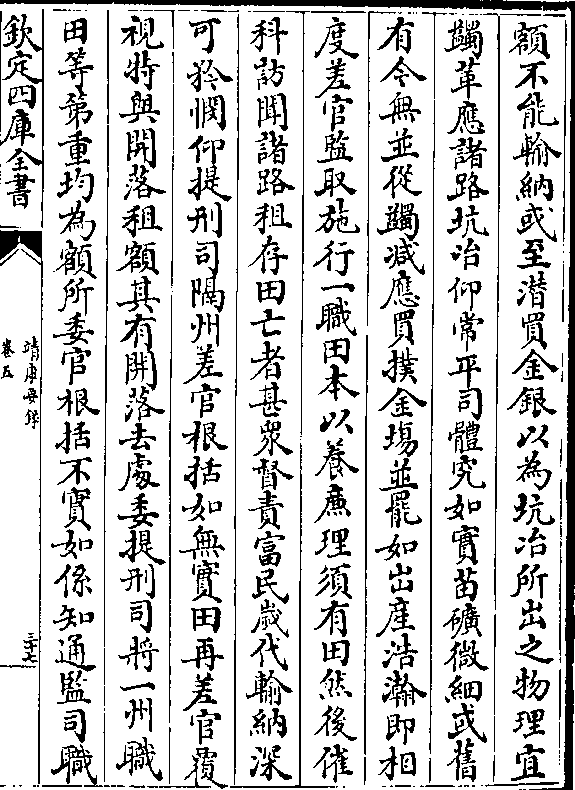 額不能輸納或至潛買金銀以為坑冶所出之物理宜
蠲革應諸路坑冶仰常平司體究如實苗礦微細或舊
有今無並從蠲減應買撲金場並罷如出産浩瀚即相
度差官監取施行一職田本以養廉理須有田然後催
科訪聞諸路租存田亡者甚衆督責富民歲代輸納深
可矜憫仰提刑司隔州差官根括如無實田再差官覆
視特與開落租額其有開落去處委提刑司將一州職
田等第重均為額所委官根括不實如係知通監司職
欽定四庫全書
靖康要錄
卷五
三十七